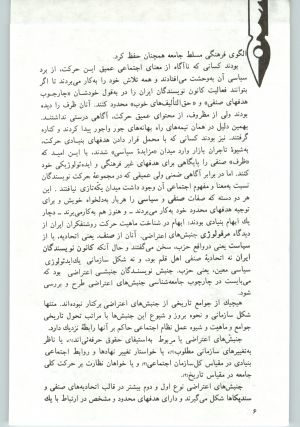 الگوی فرهنگی مسلط جامعه همچنان حفظ کرد.
بودند کسانی که ناآگاه از معنای اجتماعی عمیق ایـن حرکت، از برد
سیاسی آن به‌وحشت می‌افتادند و همه تلاش خود را به‌کار می‌بردند تا اگر
بتوانند فعالیت کانون نویسندگان ایران را در به‌قول خودشـان «چارچـوب
هدفهای صنفی» و «حق‌التألیف‌های خوب» محدود کنند. آنان ظرف را دیده
بودند ولی از مظروف، از محتوای عمیق حرکت، آگاهی درستی نداشتنـد.
بهمین دلیل در همان نیمه‌های راه بهانه‌های جور واجور پیدا کردند و کناره
گرفتند. نیز بودند کسانی که با محمل قرار دادن هدفهای بنیادی حرکت،
به‌شیوۀ تاجران بازار وارد میدان «مزایدۀ سیاسی» شدند، با این امیـد که
«ظرف» صنفی را پایگاهی برای هدفهای غیر فرهنگی و ایده‌ئولوژیکی خود
کنند. اما در برابر آگاهی ضمنی ولی عمیقی که در مجموعۀ حرکت نویسندگان
نسبت به‌معنا و مفهوم اجتماعی آن وجود داشت میدان یکه‌تازی نیافتند. این
هر دو دسته که صفات صنفی و سیاسی را هربار به‌دلخواه خویش و برای
توجیه هدفهای محدود خود به‌کار می‌بردند – و هنوز هم به‌کارمی‌برند – دچار
یك ابهام بنیادی بودند: ابهام در شناخت ماهیت حرکت روشنفکران ایران از
دیدگاه مرفولوژی جنبش‌های اعتراضی. آنان از صنف، یعنی اتحادیه، یا از
سیاست یعنی درواقع حزب، سخن می‌گفتند و حال آنکه کانون نویسندگان
ایران نه اتحادیۀ صنفی اهل قلم بود، و نه شکل سازمانی یك‌ایدئولوژی
سیاسی معین، یعنی حزب. جنبش نویسنـدگان جنبشـی اعتـراضی بود که
می‌بایست در چارچوب جامعه‌شناسی جنبش‌های اعتراضی طرح و بررسی
می‌شد.
هیچیك از جوامع تاریخی از جنبش‌های اعتراضی برکنار نبوده‌اند. منتها
شکل سازمانی و نحوه بروز و شیوع این جنبش‌ها با مراتب تحول تاریخی
جوامع و ماهیت و شیوه عمل نظام اجتماعی حاکم بر آنها رابطۀ نزدیك دارد.
جنبش‌های اعتراضی یا مربوط به‌استیفای حقوق حرفه‌ئی‌اند، یا ناظر
به‌تغییرهای سازمانی مطلوب، یا خواستار تغییر نهادها و روابط اجتماعی
بنیادی در مقیاس کل‌سازمان اجتماعی، و یا خواهان نظارت بر حرکت کلی
جامعه در مقیاس تاریخ.
جنبش‌های اعتراضی نوع اول و دوم بیشتر در قالب اتحادیه‌های صنفی و
سندیکاها شکل می‌گیرند و دارای هدفهای محدود و مشخص در ارتباط با یك
۶